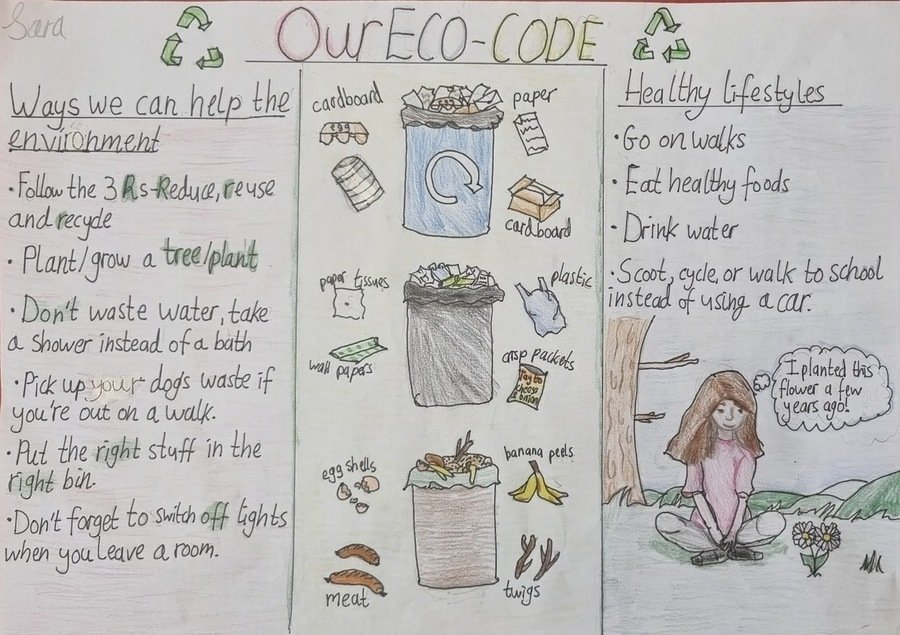 Sara
Our ECO-CODE
Ways we can help the
environment
·Follow the 3 Rs-Reduce, reuse
and recycle
·Plant/grow a tree/plant
·Don't waste water, take
a shower instead of a bath
·Pick up your dogs waste if
you're out on a walk.
·Put the right stuff in the
right bin.
·Don't forget to switch off lights
when you leave a room.
cardboard
egg
paper
cardboard
paper tissues
wall papers
plastic
crisp packets
Tayto
cheese
& onion
egg shells
meat
banana peels
twigs
Healthy lifestyles
·Go on walks
·Eat healthy foods
·Drink water
·Scoot, cycle, or walk to school
instead of using a car.
I planted this
flower a few
years ago!